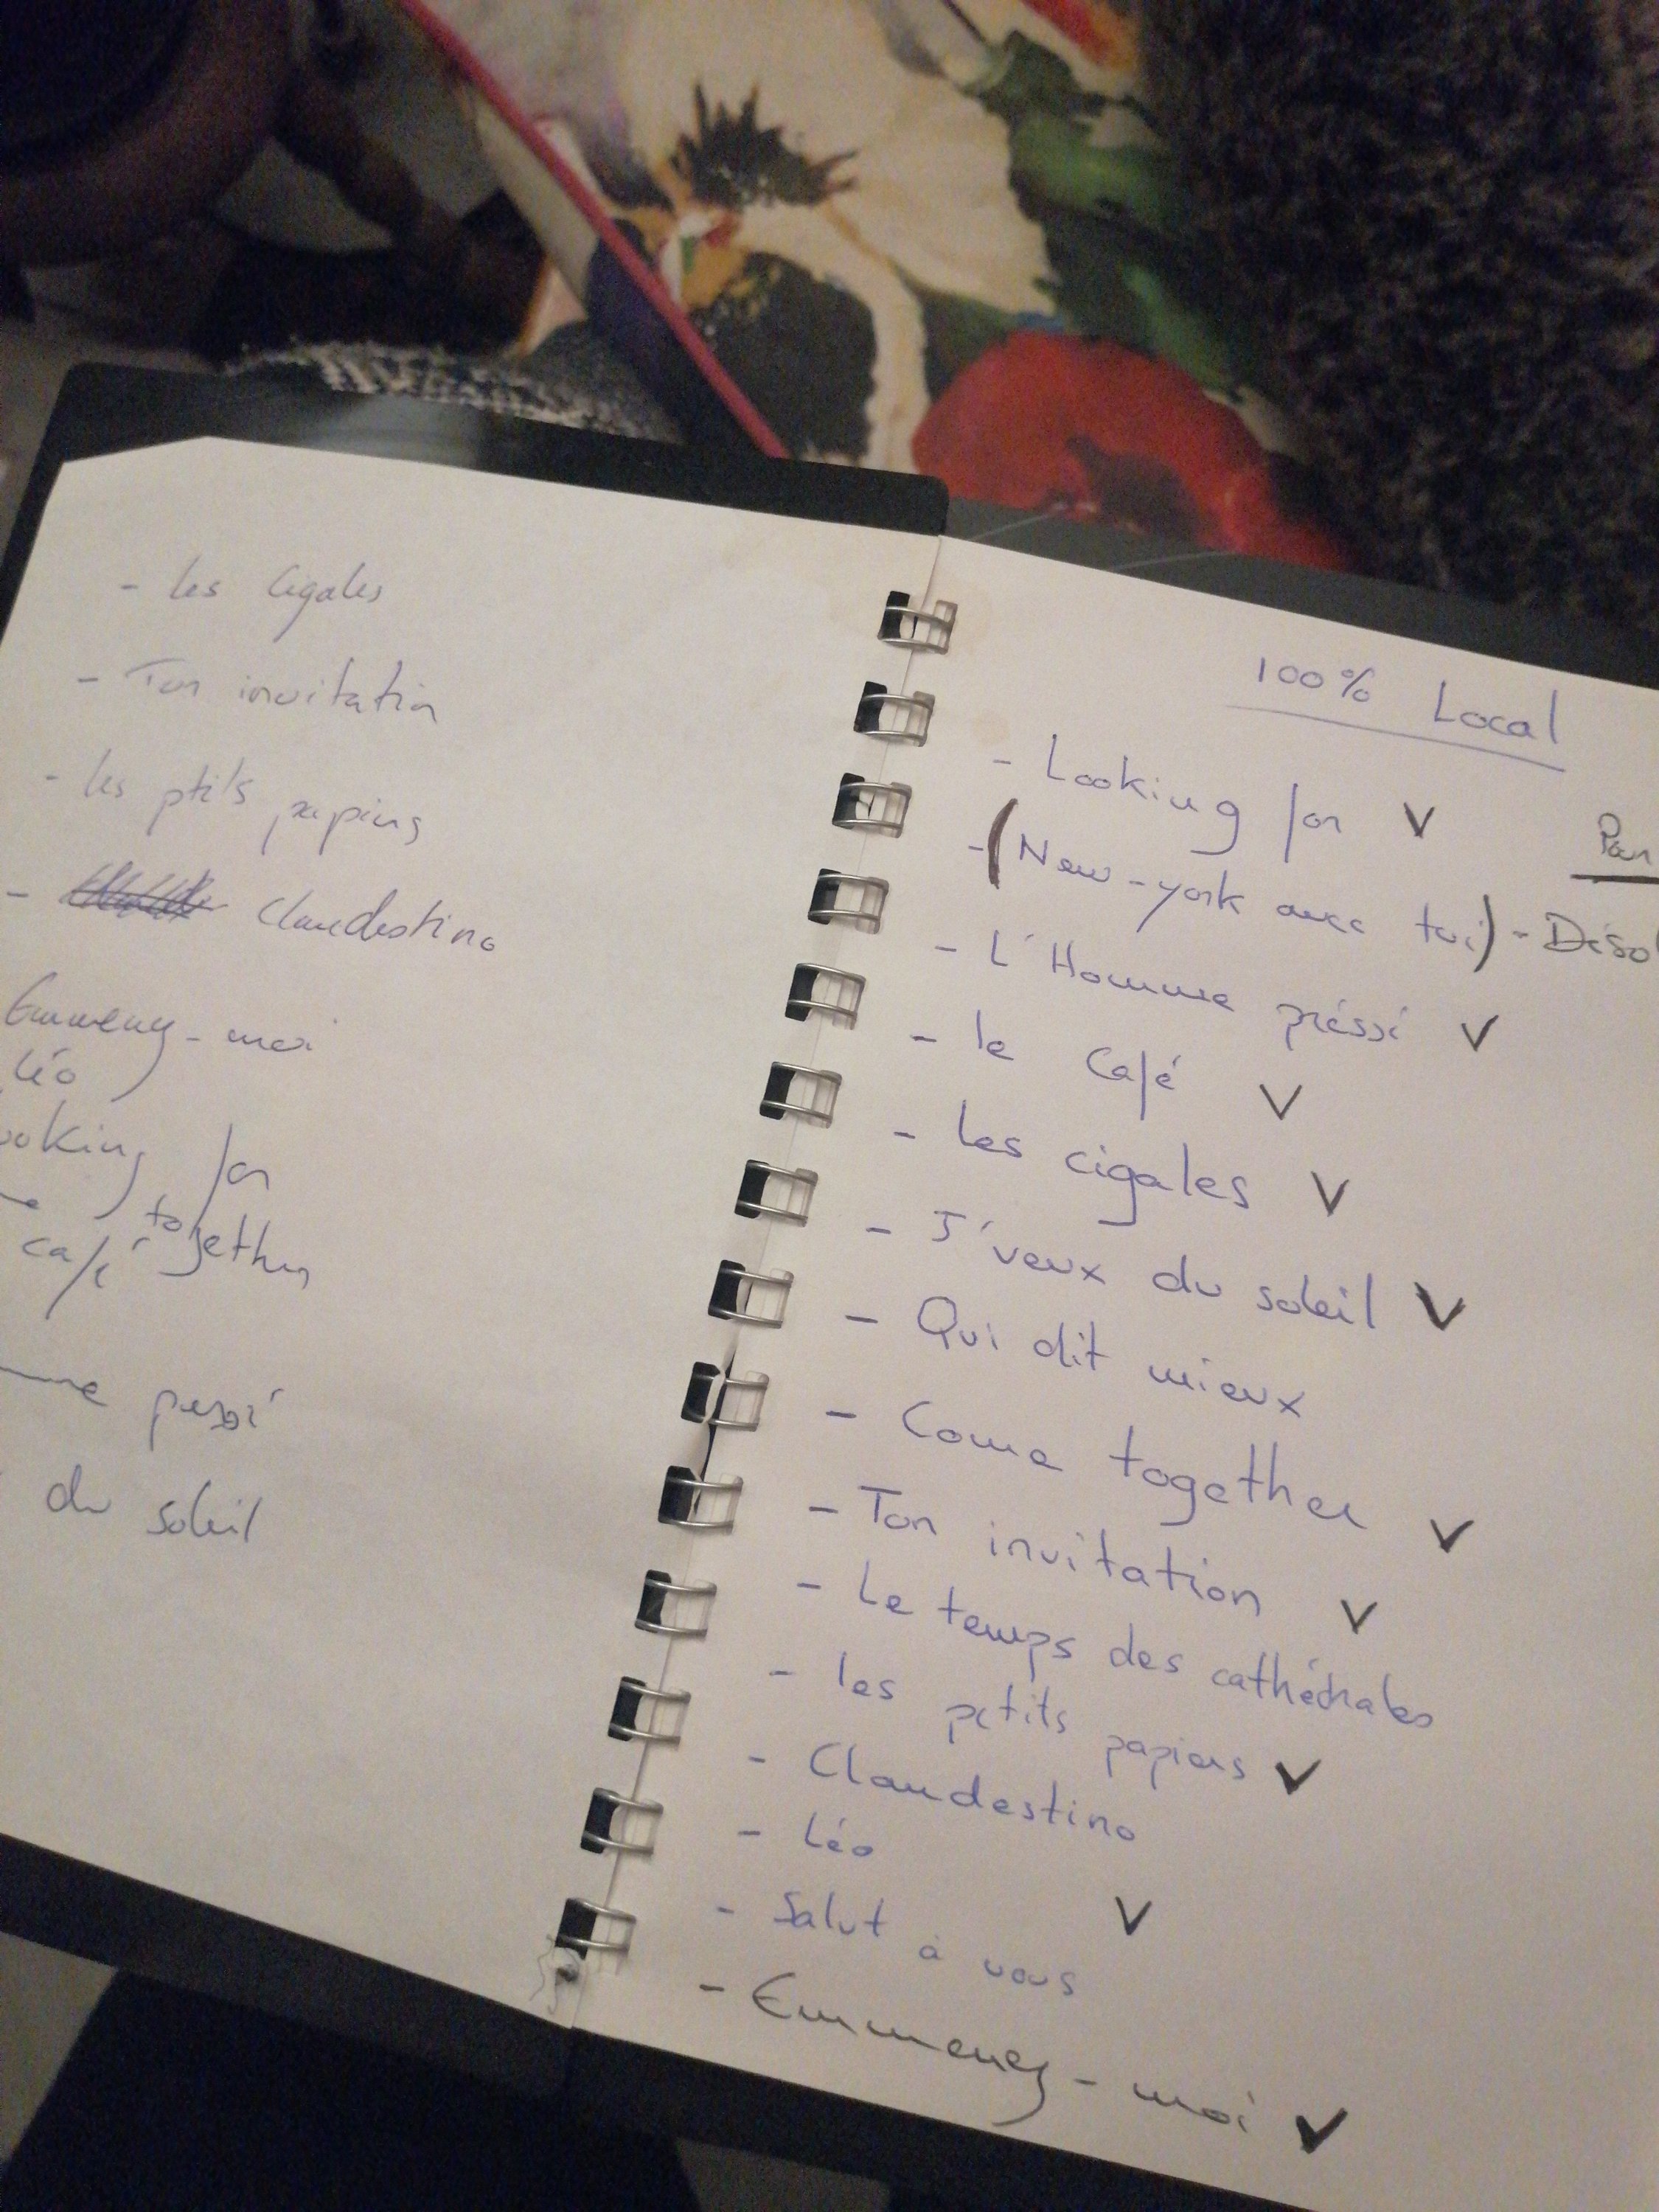 - les Cigales
- Ton invitation
- les ptits papiers
- Clandestino
Emmenez-moi
Léo
ooking for
together
café
me pressé
du soleil
100% Local
- Looking for V
Pour
- (New-york avec toi) - Déso
- L'Homme préssé V
- le Café V
- les cigales V
- J'veux du soleil V
- Qui dit mieux
- Come together V
- Ton invitation V
- Le temps des cathédrales
- les petits papiers V
- Clandestino
- Léo V
- Salut à vous
- Emmenez-moi V